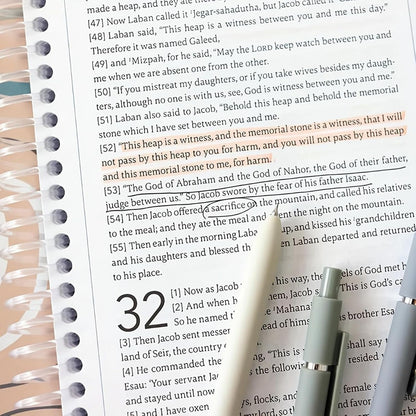 made a heap, and they
[47] Now Laban called it ᶠJegar-sahadutha, but Jacob called it
[48] Laban said, “This heap is a witness between you and me this day.”
Therefore it was named Galeed,
[49] and ᵍMizpah, for he said, “May the LORD keep watch between you and
me when we are absent one from the other.
[50] “If you mistreat my daughters, or if you take wives besides my daugh-
ters, although no one is with us, see, God is witness between you and me.”
[51] Laban also said to Jacob, “Behold this heap and behold the memorial
stone which I have set between you and me.
[52] “This heap is a witness, and the memorial stone is a witness, that I will
not pass by this heap to you for harm, and you will not pass by this heap
and this memorial stone to me, for harm.
[53] “The God of Abraham and the God of Nahor, the God of their father,
judge between us.” So Jacob swore by the fear of his father Isaac.
[54] Then Jacob offered a sacrifice on the mountain, and called his relatives
to the meal; and they ate the meal and spent the night on the mountain.
[55] Then early in the morning Laban up, and kissed his grandchildren
and his daughters and blessed then Laban departed and returned
to his place.
32
[1] Now as Jacob his way, the angels of God met
[2] And when them, Jacob This is God's
So he named ᵃMahana
[3] Then Jacob sent messengers ahead of him his brother Esau
land of Seir, the country of
[4] He commanded them “This shall say
Esau: ‘Your servant Jacob resided
and stayed until now
[5] and I have oxen flocks, and
my lord, so favor